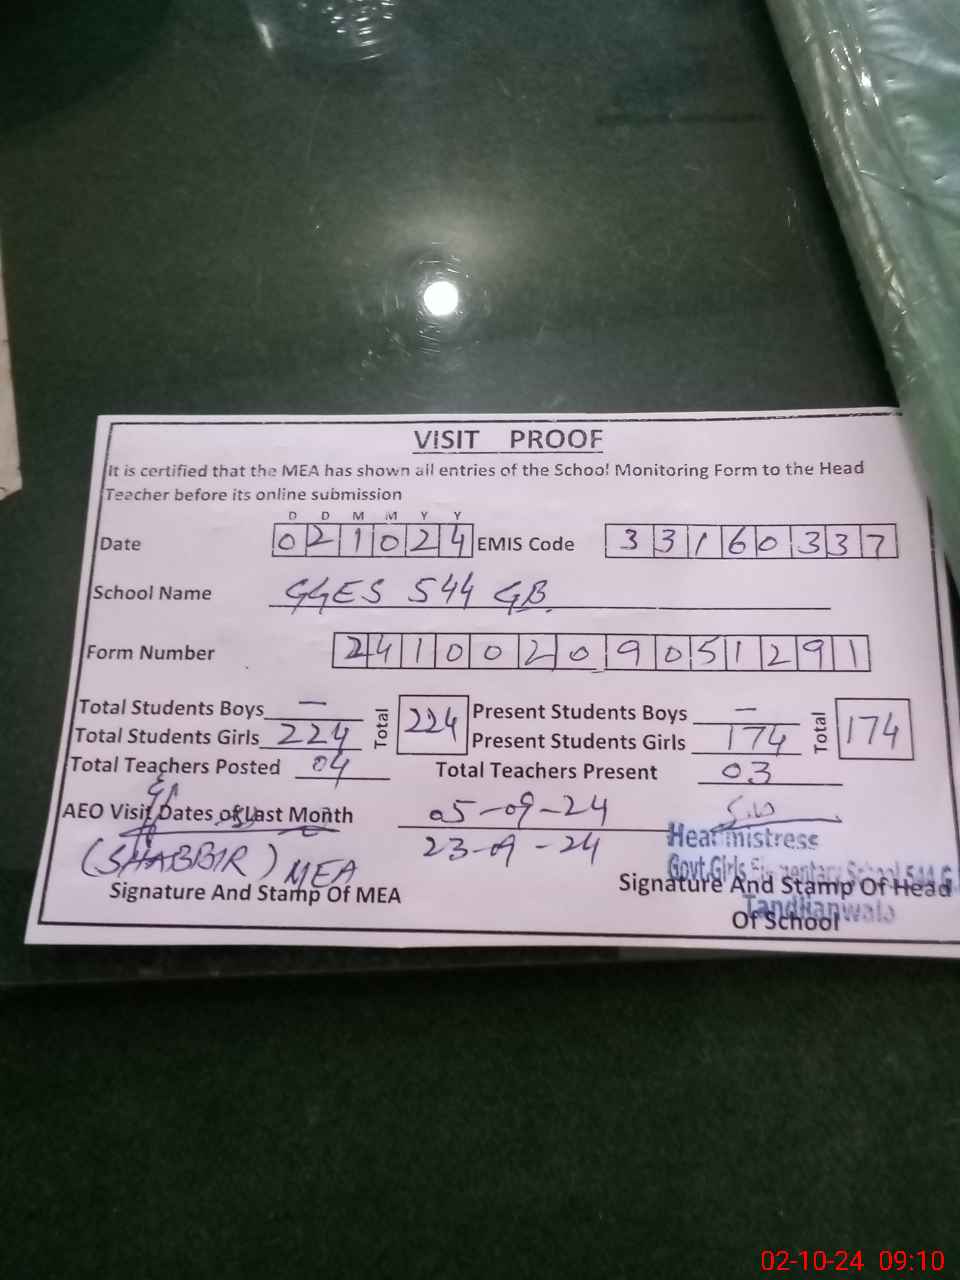 VISIT PROOF
It is certified that the MEA has shown all entries of the School Monitoring Form to the Head
Teacher before its online submission
D D M M Y Y
Date 0 2 1 0 2 4 EMIS Code 3 3 1 6 0 3 3 7
School Name GGES 544 GB
Form Number 2 4 1 0 0 2 0 9 0 5 1 2 9 1
Total Students Boys — Total 224 Present Students Boys — Total 174
Total Students Girls 224 Present Students Girls 174
Total Teachers Posted 04 Total Teachers Present 03
AEO Visit Dates of Last Month 05-09-24
23-09-24
(SHABBIR) MEA
Signature And Stamp Of MEA
Headmistress
Govt.Girls Elementary School 544 G
Tandlianwala
Signature And Stamp Of Head
Of School
02-10-24 09:10